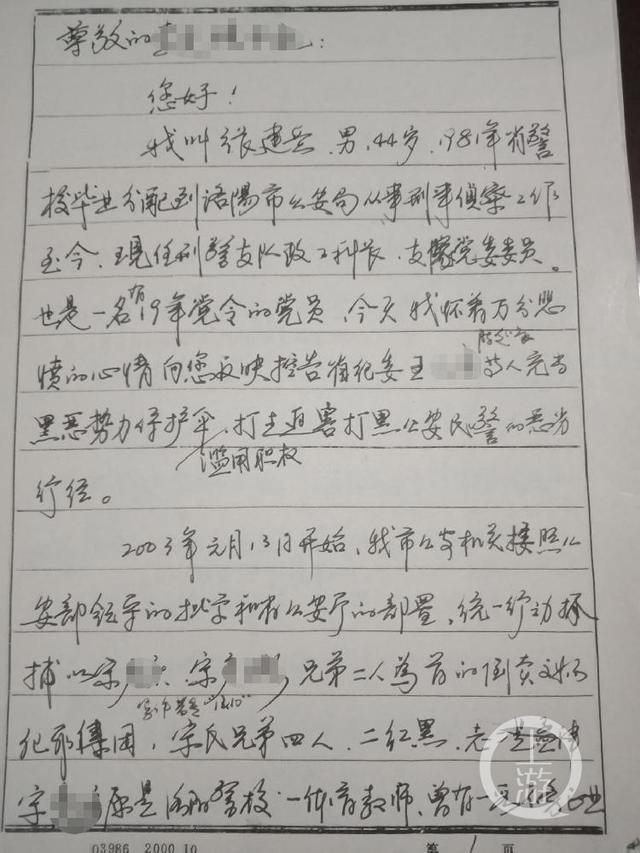 尊敬的
您好！
我叫张建云，男，44岁，1981年省警
校毕业分配到洛陽市公安局从事刑事侦察工作
至今，現任刑警支队政工科长，支隊党委委员。
也是一名有19年党令的党员，今天我怀着万分悲
愤的心情向您反映控告省纪委王 等人充当
黑恶势力保护伞，滥用职权打击迫害打黑公安民警的恶劣
行径。
2003年元月13日开始，我市公安机关按照公
安部领导的批示和省公安厅的部署，统一行动抓
捕以宋 、宋 兄弟二人為首的倒卖文物
犯罪集團，宋氏兄弟四人，二红黑，老
宋 原是洛阳警校一体育教师，曾在一
03986 2000.10 第 1 页
上游